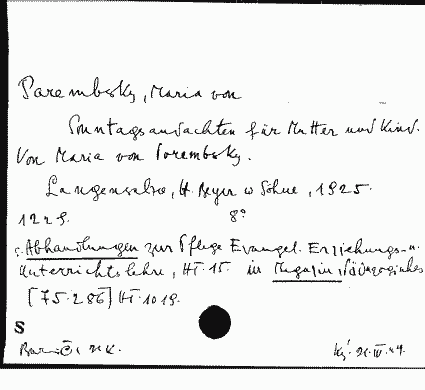 Parembsky, Maria von
Sonntagsandachten für Mutter und Kind.
Von Maria von Porembsky.
Langensalza, H. Beyer u Söhne, 1925.
122 S. 8°
s. Abhandlungen zur Pflege Evangel. Erziehungs- u.
Unterrichtslehre, Ht. 15. in Magazin, Pädagogisches
[75.286] Ht 1019.
S